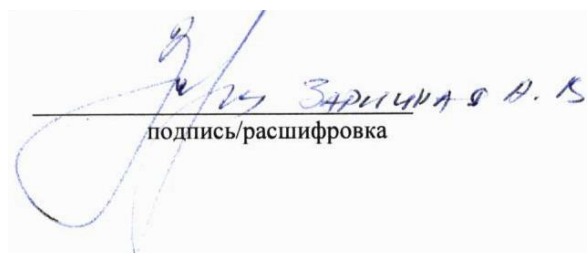 Зарицная А. В
подпись/расшифровка